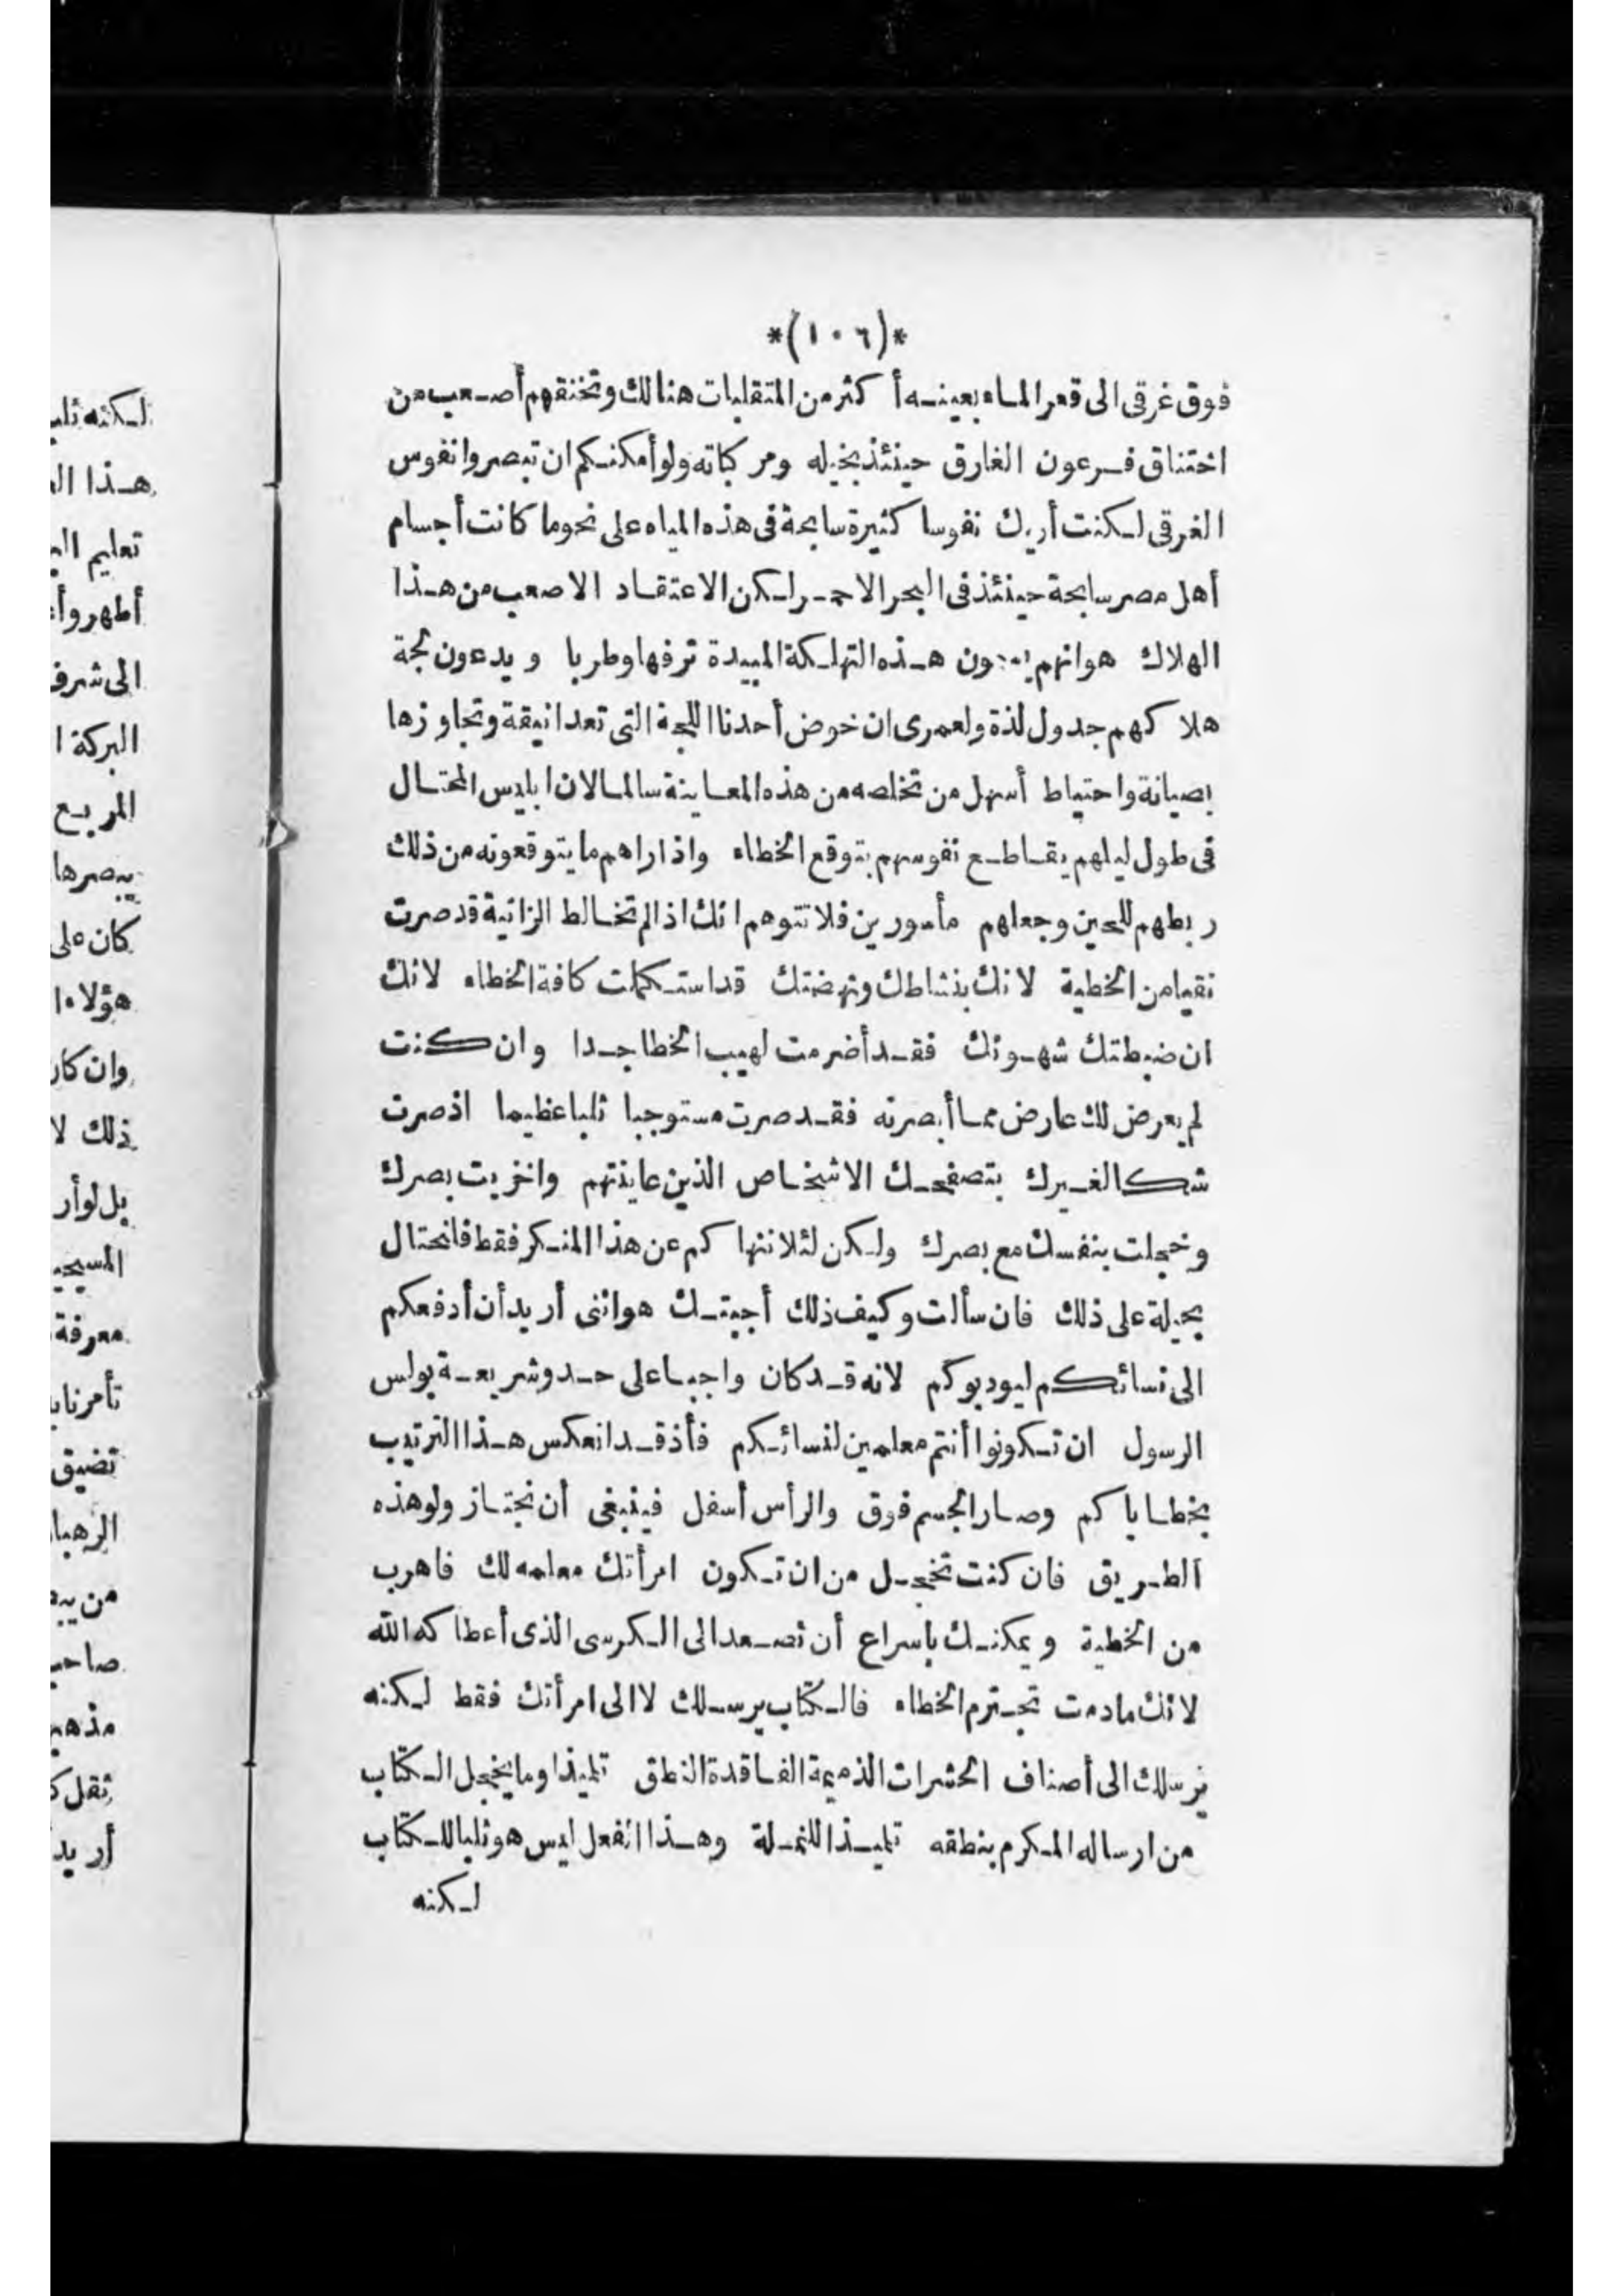 *(١٠٦)*
فوق غرقى الى قعر الماء بعينه أكثر من المتقلبات هنالك وتخنقهم أصعب من
اختناق فرعون الغارق حينئذ بخيله ومركباته ولو أمكنكم ان تبصروا نفوس
الغرقى لكنت أريك نفوسا كثيرة سابحة فى هذه المياه على نحو ما كانت أجسام
أهل مصر سابحة حينئذ فى البحر الاحمر لكن الاعتقاد الاصعب من هذا
الهلاك هو انهم هذه التهلكة المبيدة ترفها وطربا ويدعون لجة
هلاكهم جدول لذة ولعمرى ان خوض أحدنا اللجة التى تعد انيقة وتجاوزها
بصيانة واحتياط أسهل من تخلصه من هذه المعاينة سالما لان ابليس المحتال
فى طول ليلهم يقاطع نفوسهم بتوقع الخطاء واذا راهم ما يتوقعونه من ذلك
ربطهم للحين وجعلهم مأمورين فلا تتوهم انك اذا لم تخالط الزانية قد صرت
نقيا من الخطية لانك بنشاطك ونهضتك قد استكملت كافة الخطاء لانك
ان ضبطتك شهوتك فقد أضرمت لهيب الخطا جدا وان كنت
لم يعرض لك عارض مما أبصرته فقد صرت مستوجبا ثلبا عظيما اذ صرت
شكا لغيرك بتصفحك الاشخاص الذين عاينتهم واخزيت بصرك
وخجلت بنفسك مع بصرك ولكن لئلا ننهاكم عن هذا المنكر فقط فانحتال
بحيلة على ذلك فان سألت وكيف ذلك أجبتك هو اننى أريد أن أدفعكم
الى نسائكم ليودبوكم لانه قد كان واجبا على حد وشريعة بولس
الرسول ان تكونوا أنتم معلمين لنسائكم فأذ قد انعكس هذا الترتيب
بخطاياكم وصار الجسم فوق والرأس أسفل فينبغى أن نجتاز ولو هذه
الطريق فان كنت تخجل من ان تكون امرأتك معلمه لك فاهرب
من الخطية ويمكنك باسراع أن تصعد الى الكرسى الذى أعطاكه الله
لانك مادمت تجترم الخطاء فالكتاب يرسلك لا الى امرأتك فقط لكنه
يرسلك الى أصناف الحشرات الذميمة الفاقدة النطق تلميذا وما يخجل الكتاب
من ارساله المكرم بنطقه تلميذا للنملة وهذا الفعل ليس هو ثلبا للكتاب
لكنه
لكنه ثلب
هذا
تعليم
أطهر
الى شرف
البركة
المربع
يبصرها
كان على
هؤلاء
وان كان
ذلك لا
بل لو أر
معرفة
تضيق
أريد